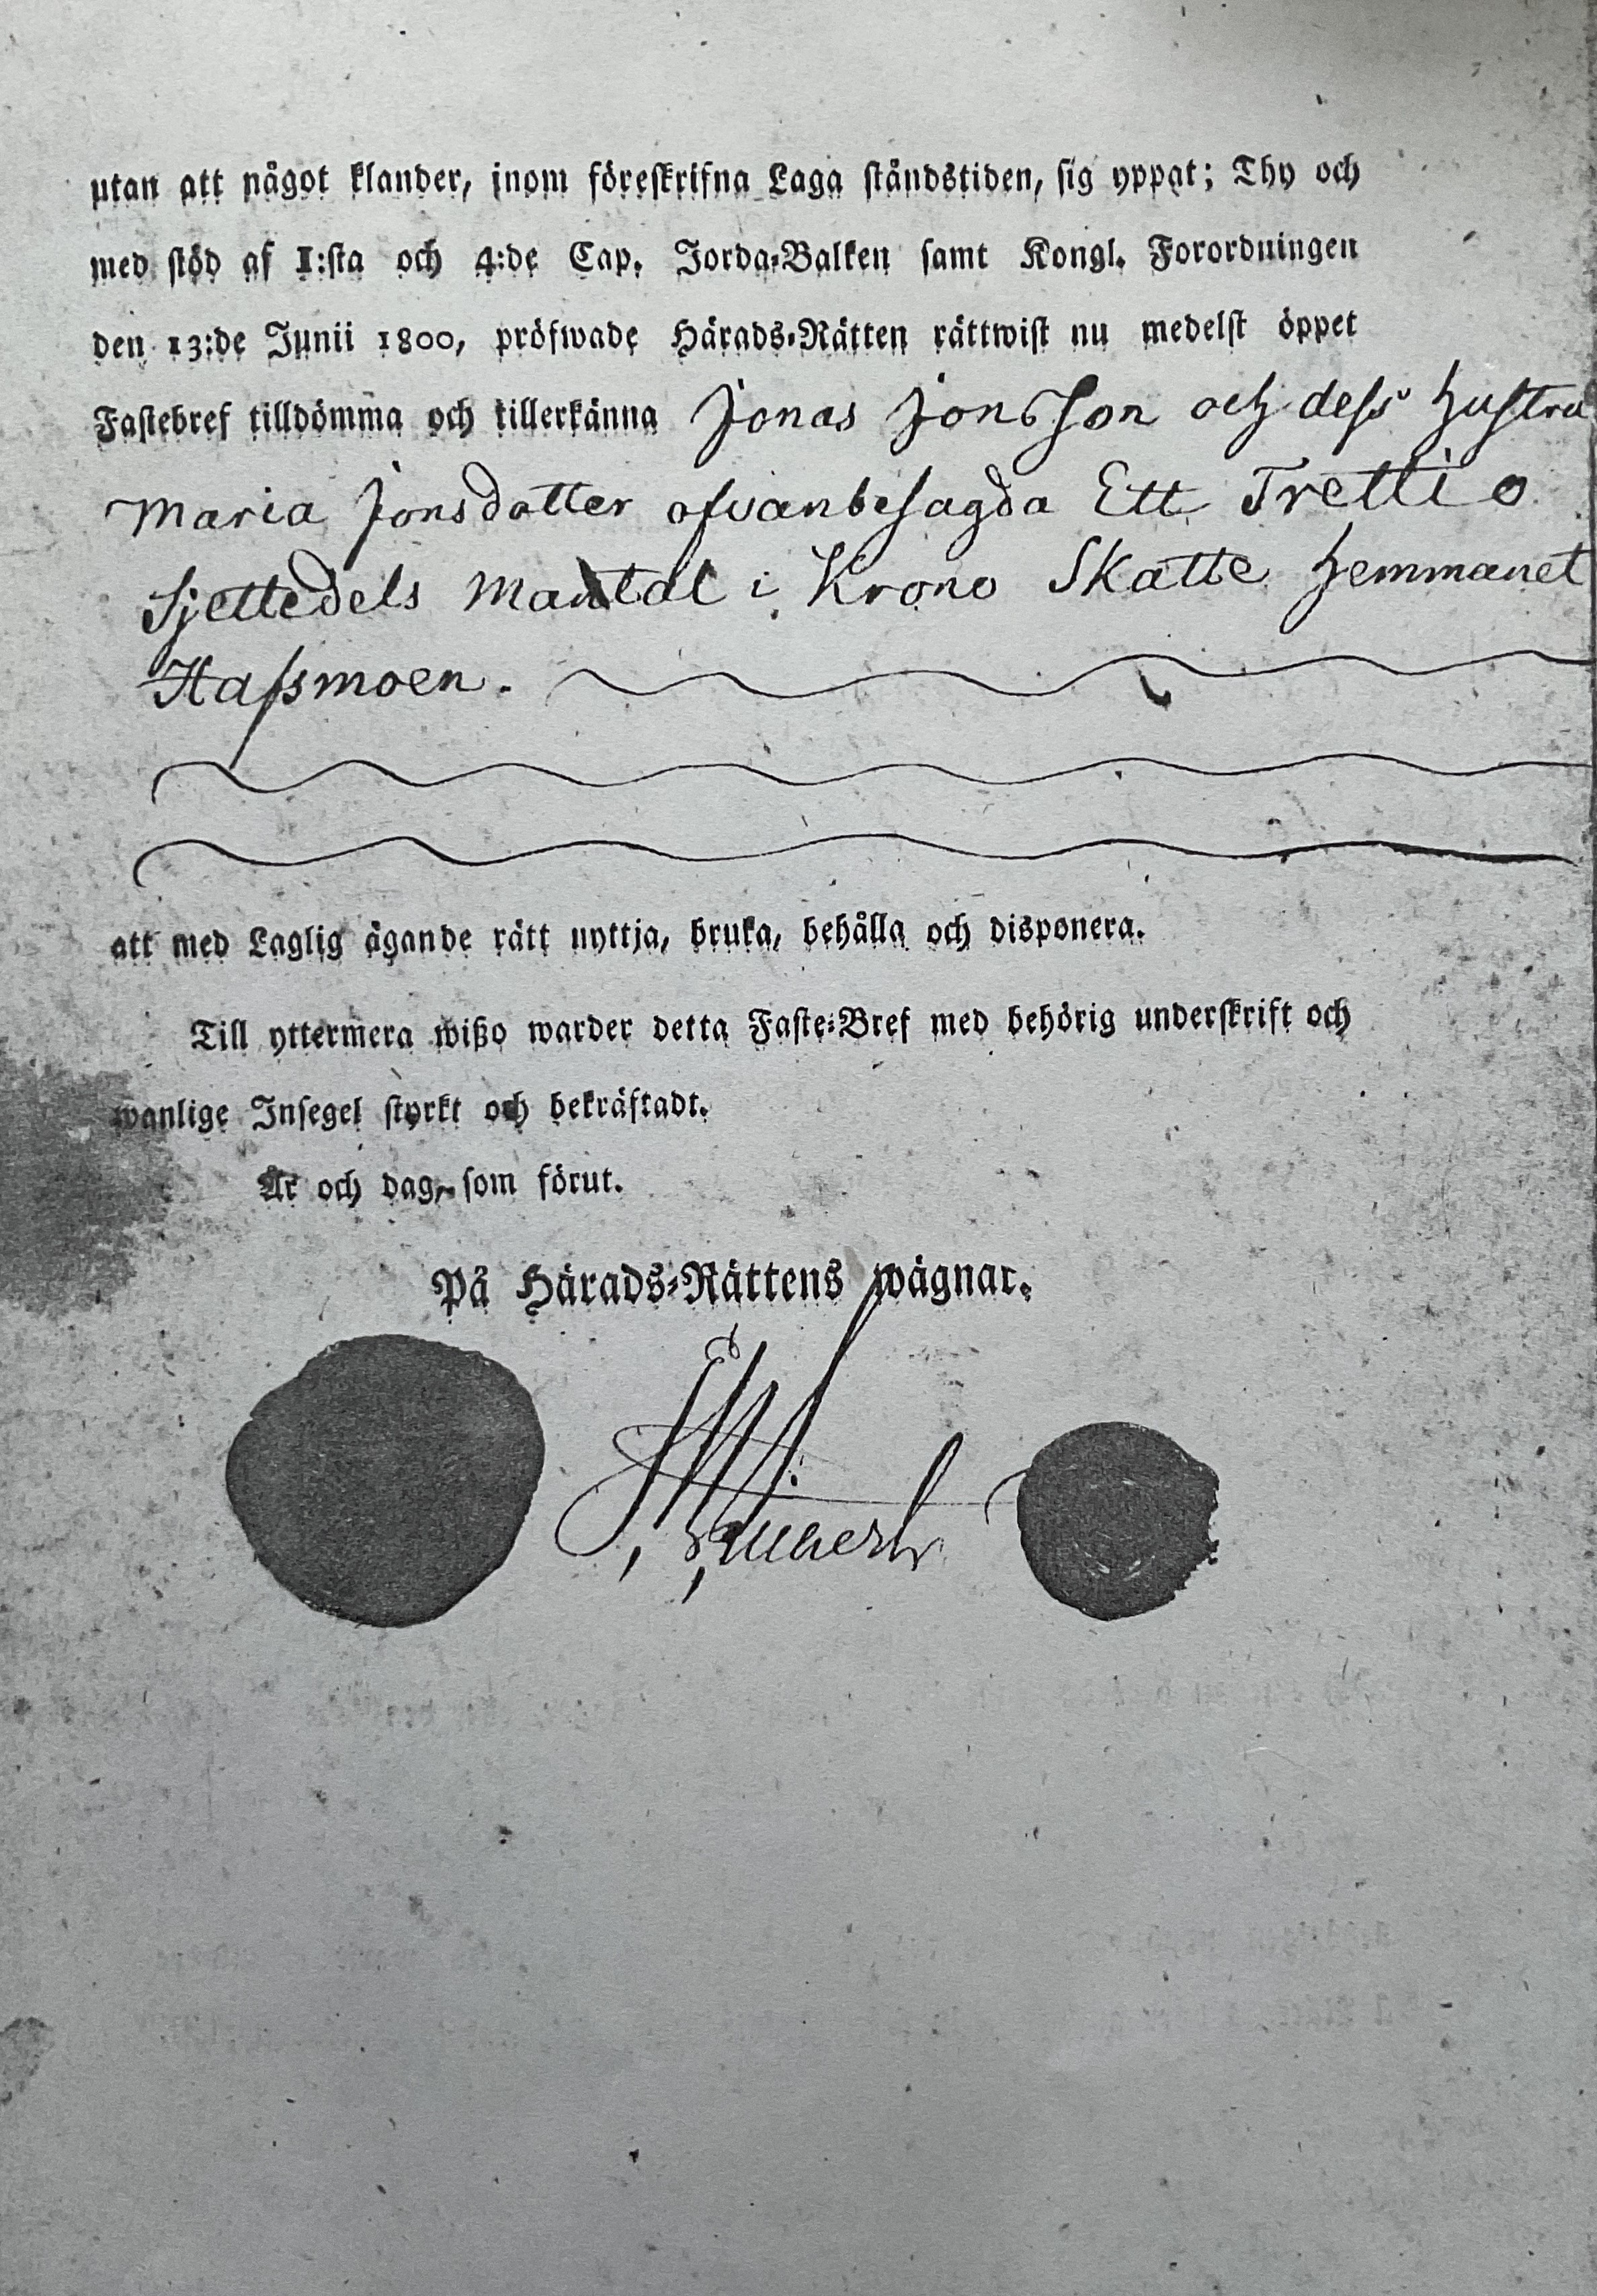 utan att något klander, inom föreskrifna Laga ståndstiden, sig yppat; Thy och
med stöd af I:sta och 4:de Cap. Jorda-Balken samt Kongl. Forordningen
den 13:de Junii 1800, pröfwade Härads-Rätten rättwist nu medelst öppet
Fastebref tilldömma och tillerkänna Jonas Jonsson och dess hustru
Maria Jonsdotter ofvanbesagda Ett Trettio
Sjettedels Mantal i Krono Skatte hemmanet
Hassmoen.
att med Laglig ägande rätt nyttja, bruka, behålla och disponera.
Till yttermera wißo warder detta Faste-Bref med behörig underskrift och
wanlige Insegel styrkt och bekräftadt.
År och dag, som förut.
På Härads-Rättens wägnar.